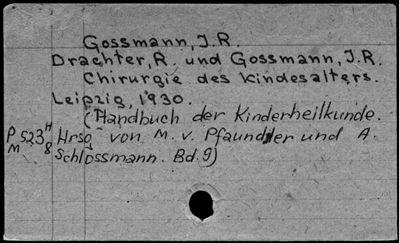 Gossmann, J.R.
Drachter, R. und Gossmann, J.R.
Chirurgie des Kindesalters.
Leipzig, 1930.
(Handbuch der Kinderheilkunde.
P 523 H Hrsg von M. v. Pfaundler und A.
M 8 Schlossmann. Bd. 9)